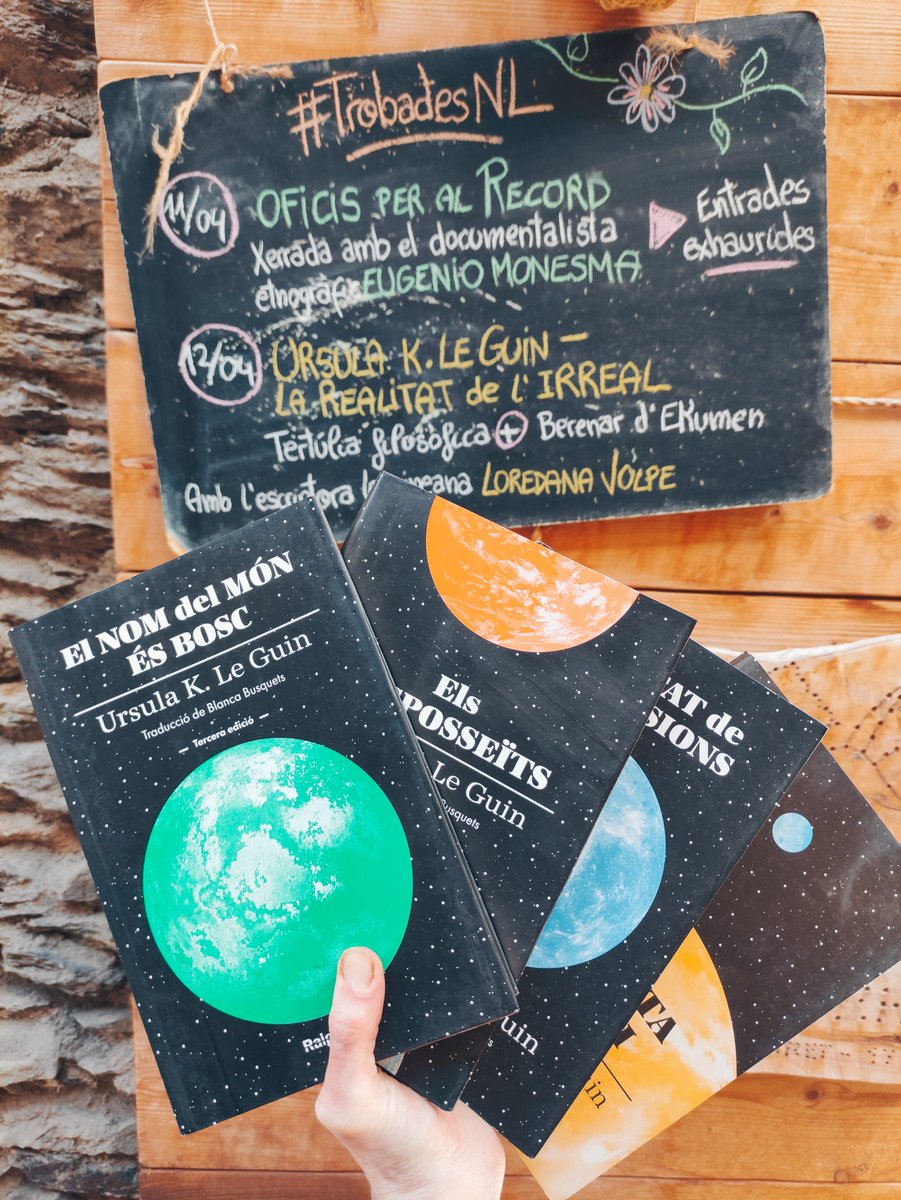 #TrobadesNL
11/04
OFICIS PER AL RECORD
Xerrada amb el documentalista
EUGENIO MONESMA
Entrades
exhaurides
12/04
URSULA K. LE GUIN –
LA REALITAT de L'IRREAL
Tertúlia filosòfica + Berenar d'EKumen
Amb l'escriptora
LOREDANA VOLPE
El NOM del MÓN
ÉS BOSC
Ursula K. Le Guin
Traducció de Blanca Busquets
— Tercera edició —
Els
POSSEÏTS
Le Guin
Busquets
AT de
SIONS
Guin
TA
in